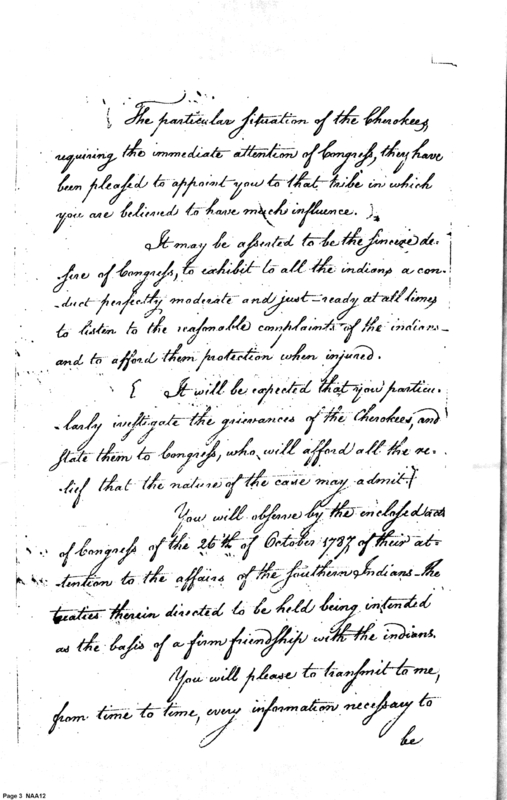 { The particular situation of the Cherokees,
requiring the immediate attention of Congress, they have
been pleased to appoint you to that tribe in which
you are believed to have much influence. }
It may be asserted to be the sincere de-
sire of Congress, to exhibit to all the indians a con-
-duct perfectly moderate and just - ready at all times
to listen to the reasonable complaints of the indians -
and to afford them protection when injured.
{ It will be expected that you particu-
-larly investigate the grievances of the Cherokees, and
state them to Congress, who will afford all the re-
-lief that the nature of the case may admit. }
You will observe by the enclosed acts
of Congress of the 26th of October 1787, of their at-
-tention to the affairs of the Southern Indians - the
treaties therein directed to be held being intended
as the basis of a firm friendship with the indians.
You will please to transmit to me,
from time to time, every information necessary to
be
Page 3 NAA12